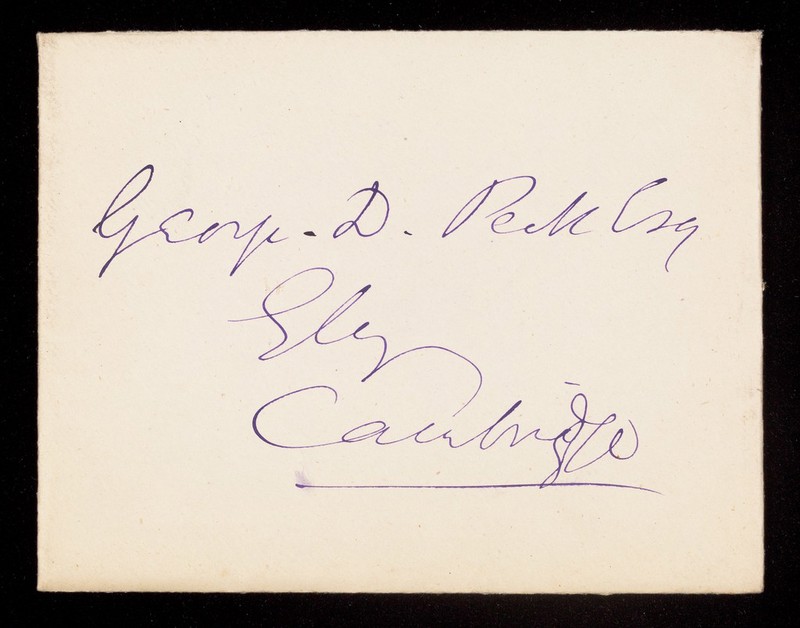 George. D. Peck Esq
Ely
Cambridge